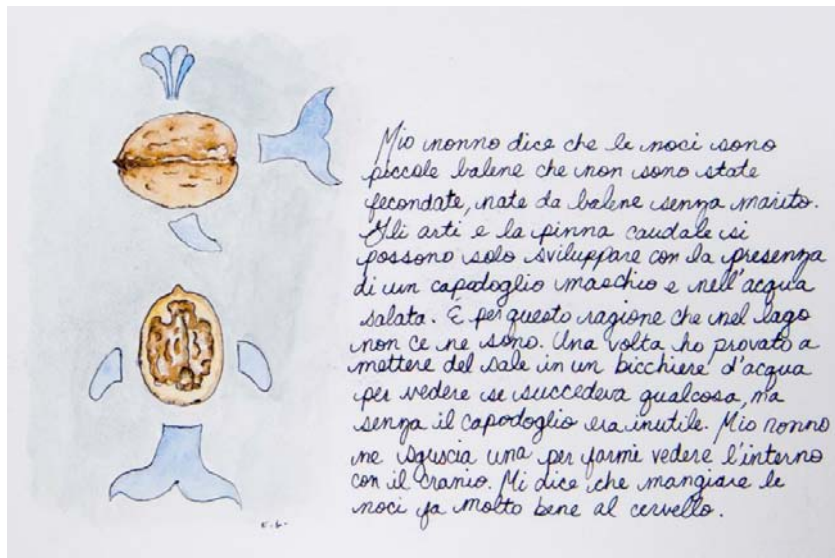 Mio nonno dice che le noci sono
piccole balene che non sono state
fecondate, nate da balene senza marito.
Gli arti e la pinna caudale si
possono solo sviluppare con la presenza
di un capodoglio maschio e nell'acqua
salata. È per questo ragione che nel lago
non ce ne sono. Una volta ho provato a
mettere del sale in un bicchiere d'acqua
per vedere se succedeva qualcosa, ma
senza il capodoglio era inutile. Mio nonno
ne sguscia una per farmi vedere l'interno
con il cranio. Mi dice che mangiare le
noci fa molto bene al cervello.